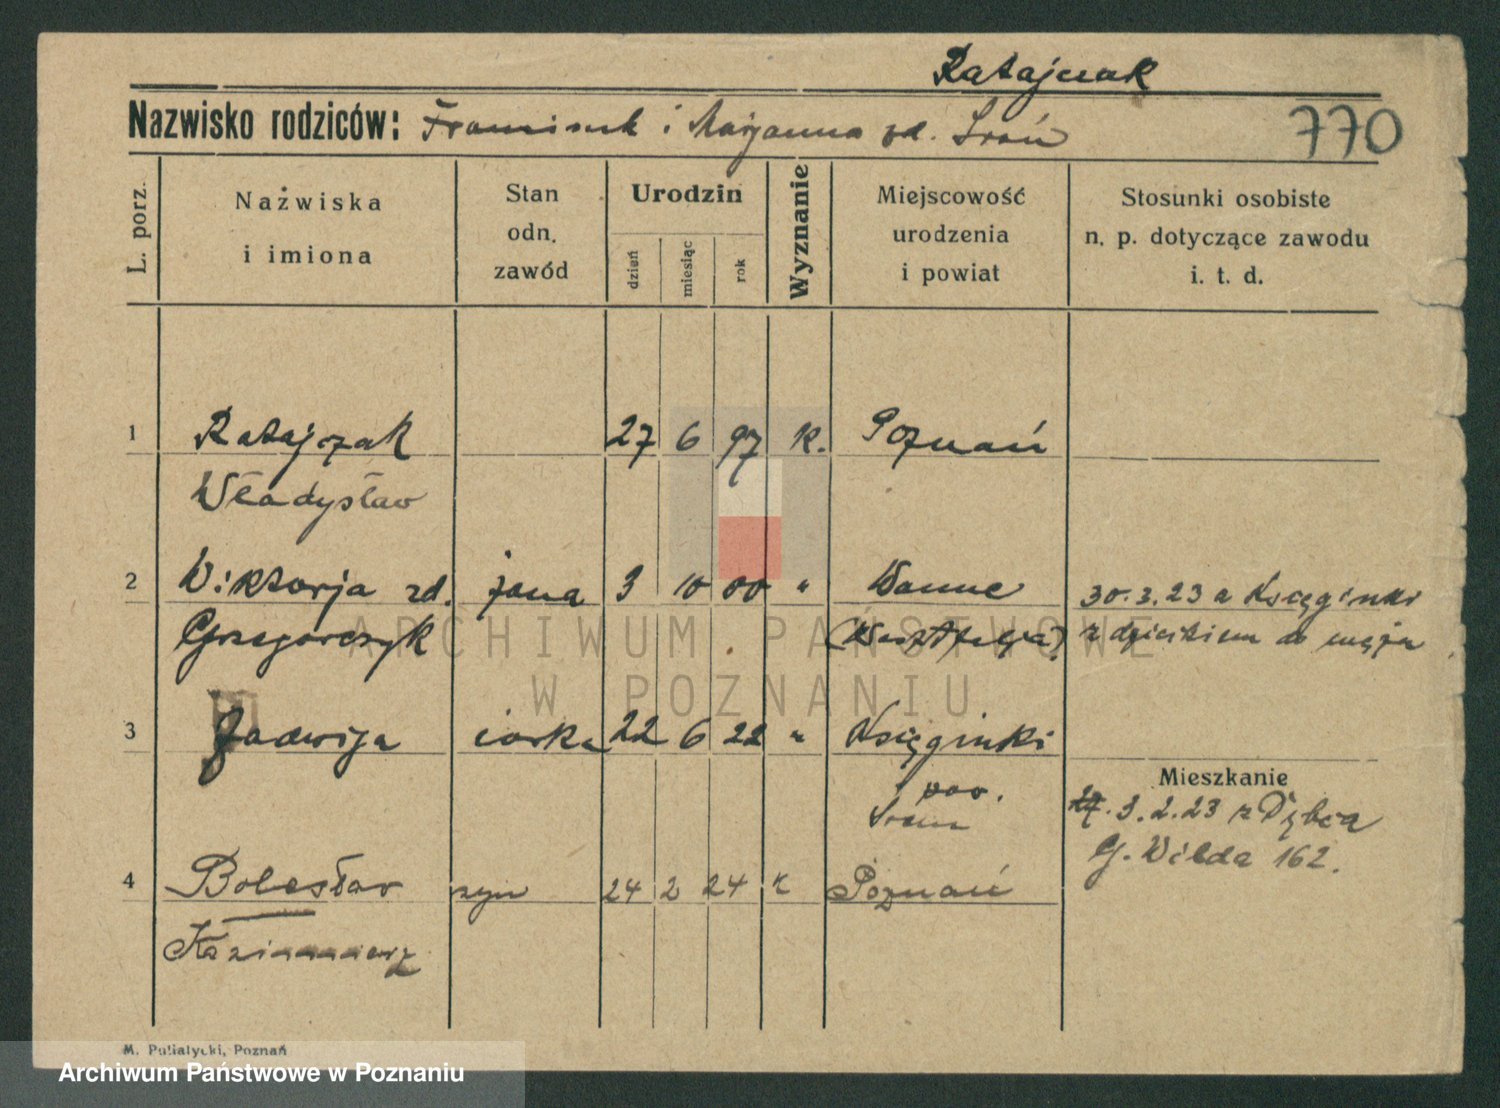 Ratajczak
Nazwisko rodziców: Franciszek i Marjanna zd. Sroń
770
L. porz.
Nazwiska
i imiona
Stan
odn.
zawód
Urodzin
dzień
miesiąc
rok
Wyznanie
Miejscowość
urodzenia
i powiat
Stosunki osobiste
n. p. dotyczące zawodu
i. t. d.
1 Ratajczak 27 6 97 k. Poznań
Władysław
2 Wiktorja zd. żona 3 10 00 " Wanne
Grzegorczyk (Westfalja)
30.3.23 a Księginki
z dzieckiem do męża
3 Jadwiga córka 22 6 22 " Księginki
pow.
Śrem
Mieszkanie
3.2.23 z Dębca
G. Wilda 162.
4 Bolesław syn 24 2 24 k Poznań
Kazimierz
M. Putiatycki, Poznań
ARCHIWUM PAŃSTWOWE
W POZNANIU
Archiwum Państwowe w Poznaniu